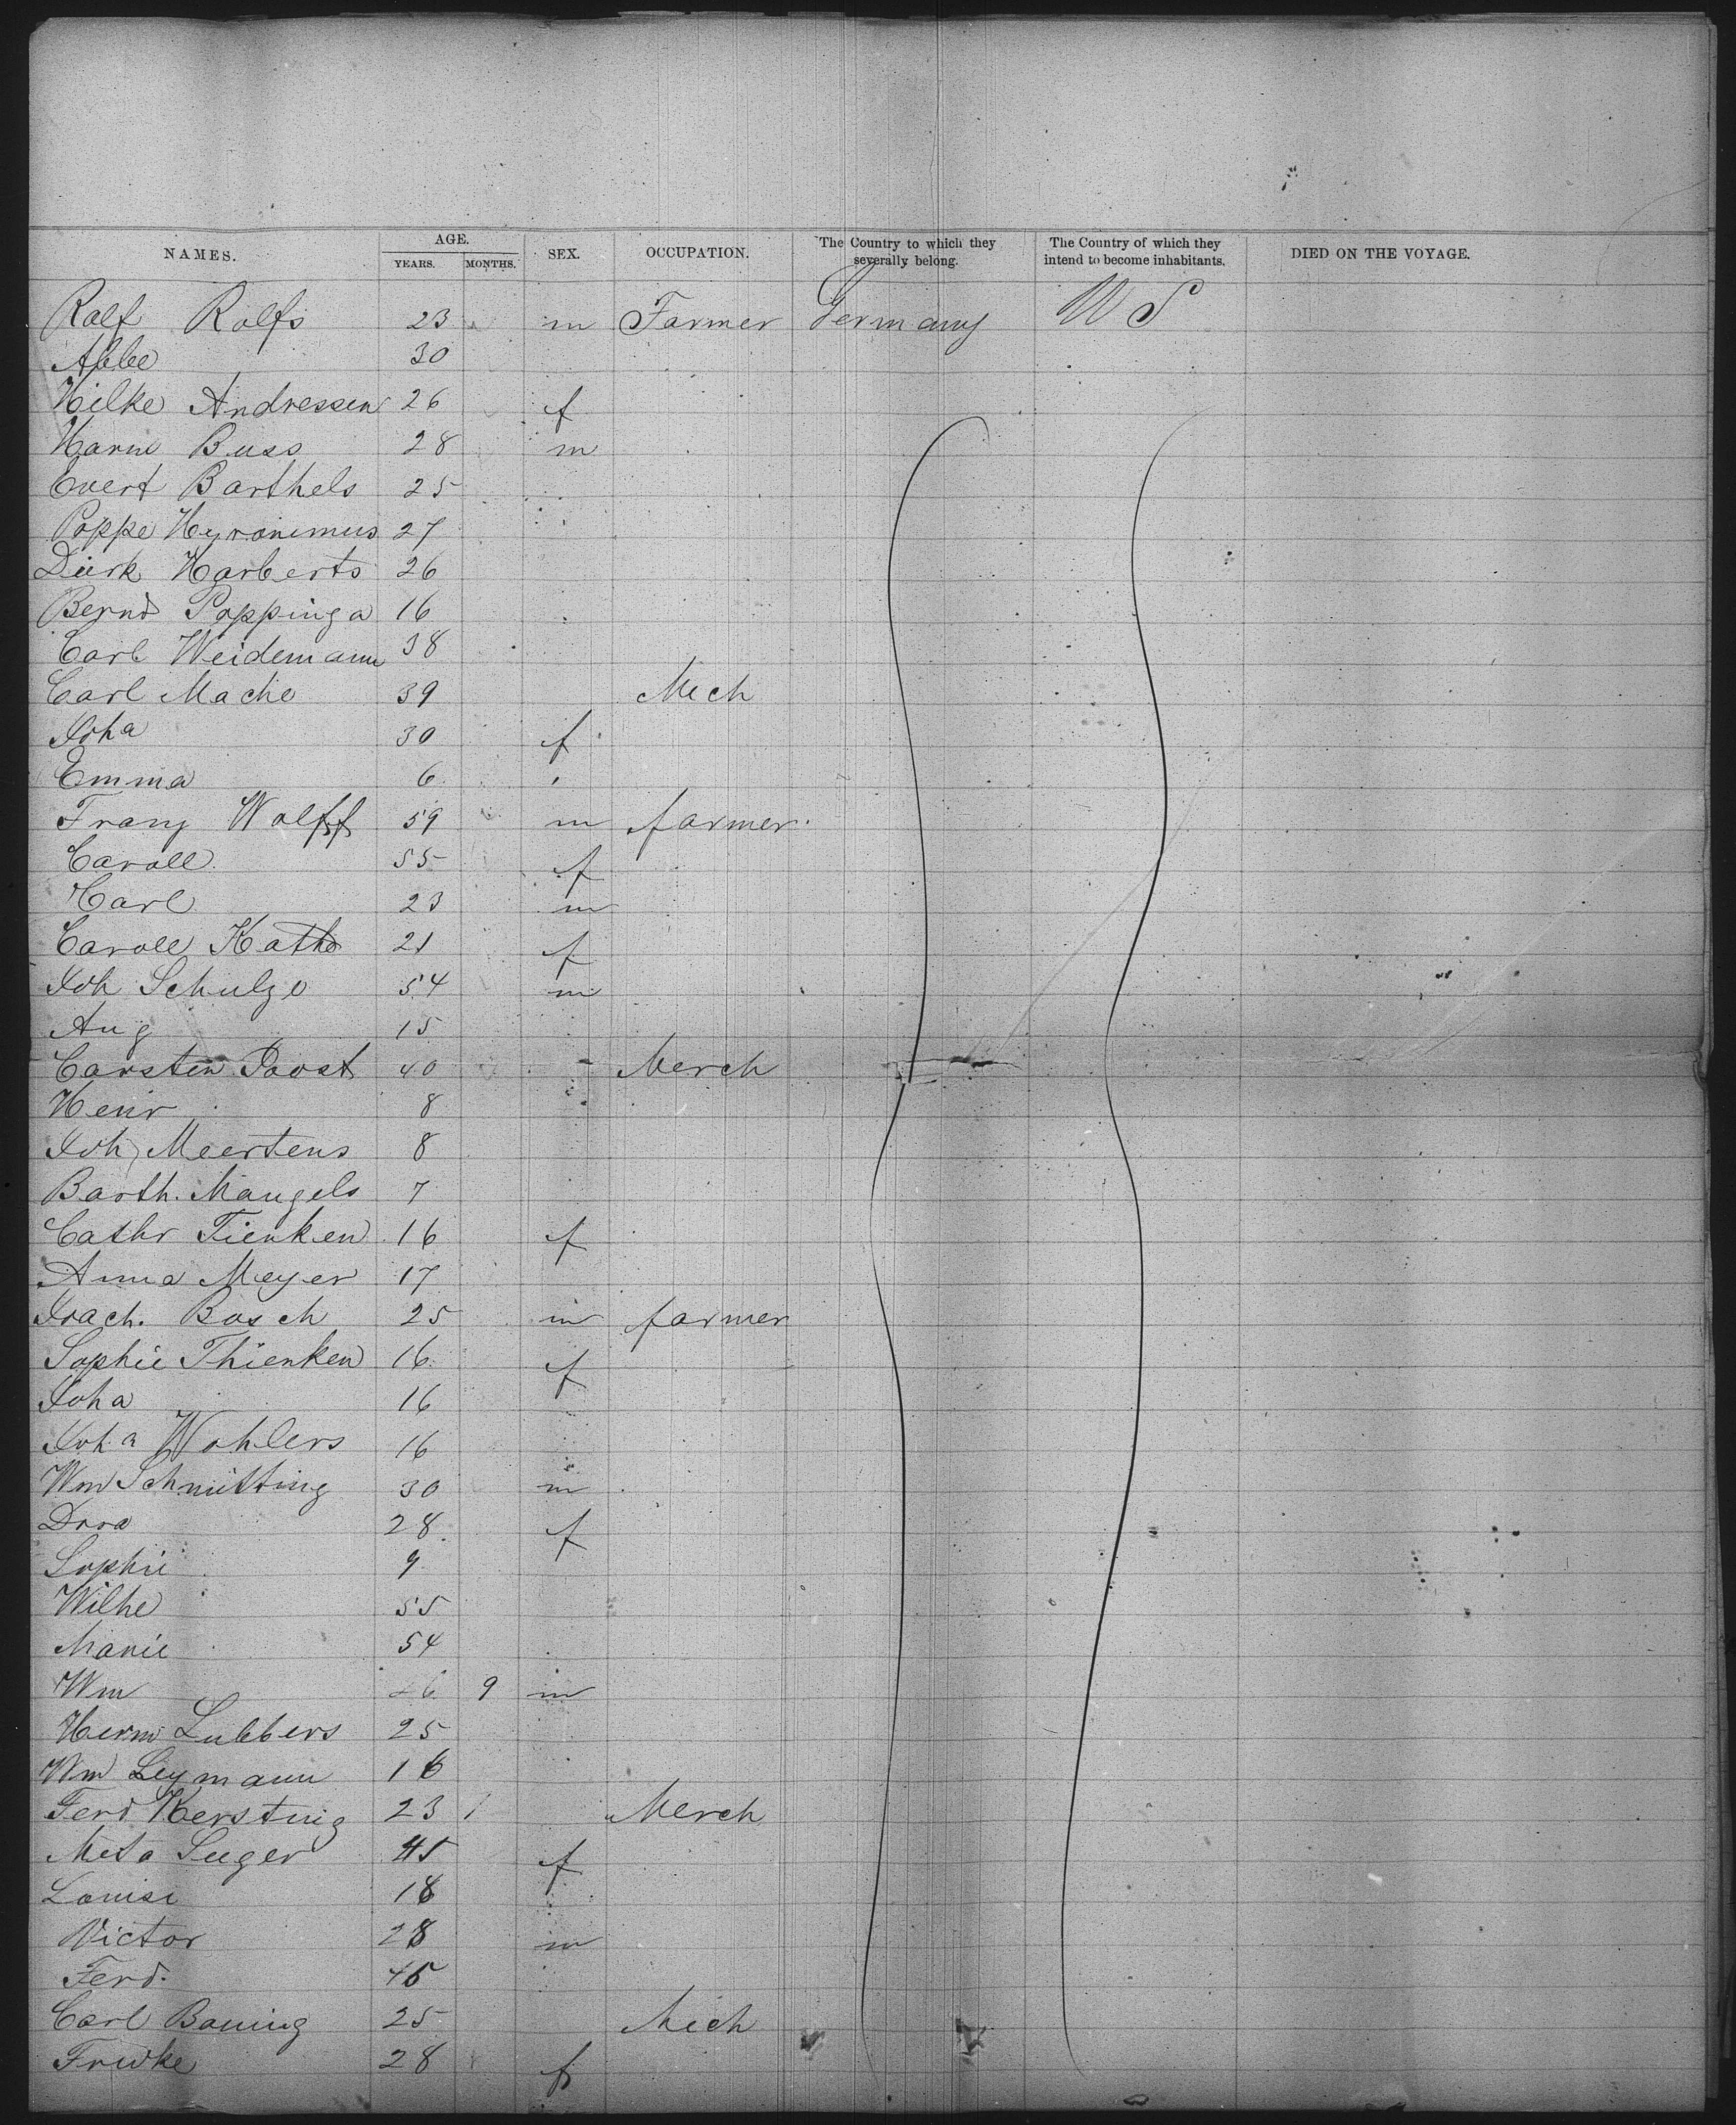 NAMES. AGE. YEARS. MONTHS. SEX. OCCUPATION. The Country to which they severally belong. The Country of which they intend to become inhabitants. DIED ON THE VOYAGE.
Rolf Rolfs 23 m Farmer Germany U S
Abbe 30
Hilke Andressen 26 f
Harm Buss 28 m
Evert Barthels 25
Poppe Hyronimus 27
Dirk Harberts 26
Bernd Poppinga 16
Carl Weidemann 38
Carl Mache 39 Mech
Joha 30 f
Emma 6
Franz Wolff 59 m farmer
Caroll 55 f
Carl 23 m
Caroll Kathe 21 f
Joh Schulze 54 m
Aug 15
Carsten Joost 40 Merch
Heinr 8
Joh Meertens 8
Barth. Mangels 7
Cathr Tienken 16 f
Anna Meyer 17
Joach. Bosch 25 m farmer
Sophie Thienken 16 f
Joha 16
Joha Wohlers 16
Wm Schmitting 30 m
Dora 28 f
Sophie 9
Wilhe 55
Marie 54
Wm 9 m
Herm Lubbers 25
Wm Leymann 16
Ferd Kersting 23 Merch
Meta Luger 45 f
Louise 18
Victor 28 m
Ferd. 45
Carl Boning 25 Mech
Frwke 28 f